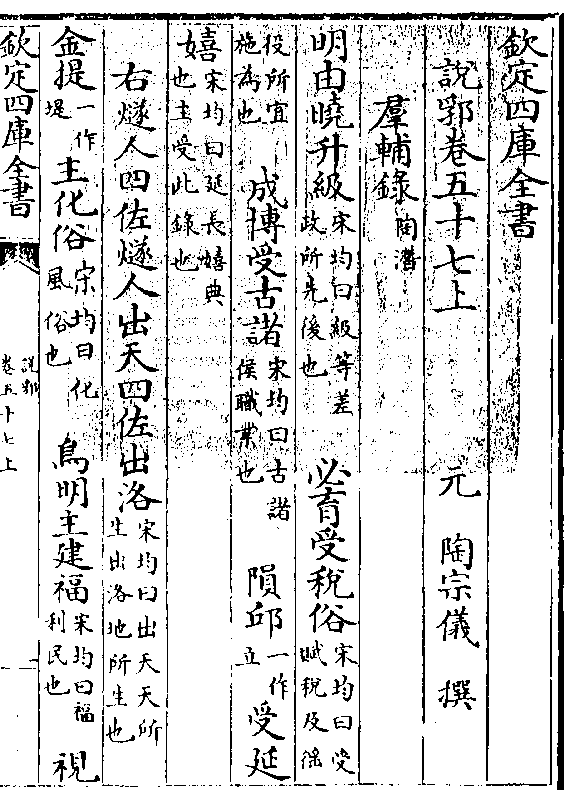 欽定四庫全書
說郛卷五十七上 元 陶宗儀 撰
羣輔錄 陶潛
明由曉升級 宋均曰級等差政所先後也 必育受稅俗 宋均曰受賦稅及徭
役所宜施為也 成博受古諸 宋均曰古諸侯職業也 隕邱 一作立 受延
嬉 宋均曰延長嬉典也主受此錄也
右燧人四佐燧人出天四佐出洛 宋均曰出天天所生出洛地所生也
金提 一作堤 主化俗 宋均曰化風俗也 鳥明主建福 宋均曰福利民也 視
欽定四庫全書 說郛 卷五十七上 一